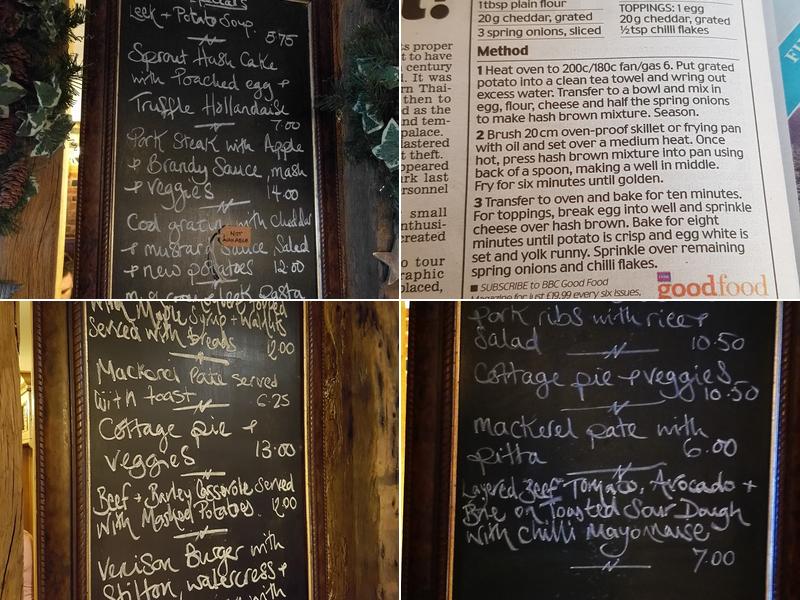 Specials
Leek + Potato Soup.
5.75
Sprout Hash Cake
with Poached egg +
Truffle Hollandaise
7.00
Pork Steak with Apple
+ Brandy Sauce, mash
+ veggies 14.00
Cod gratin with cheddar
+ mustard sauce, Salad
NOT AVAILABLE
+ new potatoes 12.00
leek pasta
1tbsp plain flour
20g cheddar, grated
3 spring onions, sliced
TOPPINGS: 1 egg
20g cheddar, grated
½tsp chilli flakes
Method
1 Heat oven to 200c/180c fan/gas 6. Put grated
potato into a clean tea towel and wring out
excess water. Transfer to a bowl and mix in
egg, flour, cheese and half the spring onions
to make hash brown mixture. Season.
2 Brush 20cm oven-proof skillet or frying pan
with oil and set over a medium heat. Once
hot, press hash brown mixture into pan using
back of a spoon, making a well in middle.
Fry for six minutes until golden.
3 Transfer to oven and bake for ten minutes.
For toppings, break egg into well and sprinkle
cheese over hash brown. Bake for eight
minutes until potato is crisp and egg white is
set and yolk runny. Sprinkle over remaining
spring onions and chilli flakes.
■ SUBSCRIBE to BBC Good Food
Magazine for just £19.99 every six issues,
goodfood
s proper
t to have
century
. It was
rn Thai-
then to
nd tem-
palace.
lastered
t theft.
ppeared
rk last
ersonnel
small
nthusi-
created
o tour
raphic
placed,
with Maple Syrup + Walnuts
Served with breads 12.00
Mackerel Pate served
with toast 6.25
Cottage pie +
veggies 13.00
Beef + Barley Casserole Served
with Mashed Potatoes. 12.00
Venison Burger with
Stilton, watercress +
with
Pork ribs with rice +
Salad 10.50
Cottage pie + veggies
10.50
mackerel pate with
pitta 6.00
Layered Beef Tomato, Avocado +
Brie on Toasted Sour Dough
with Chilli Mayonaise
7.00